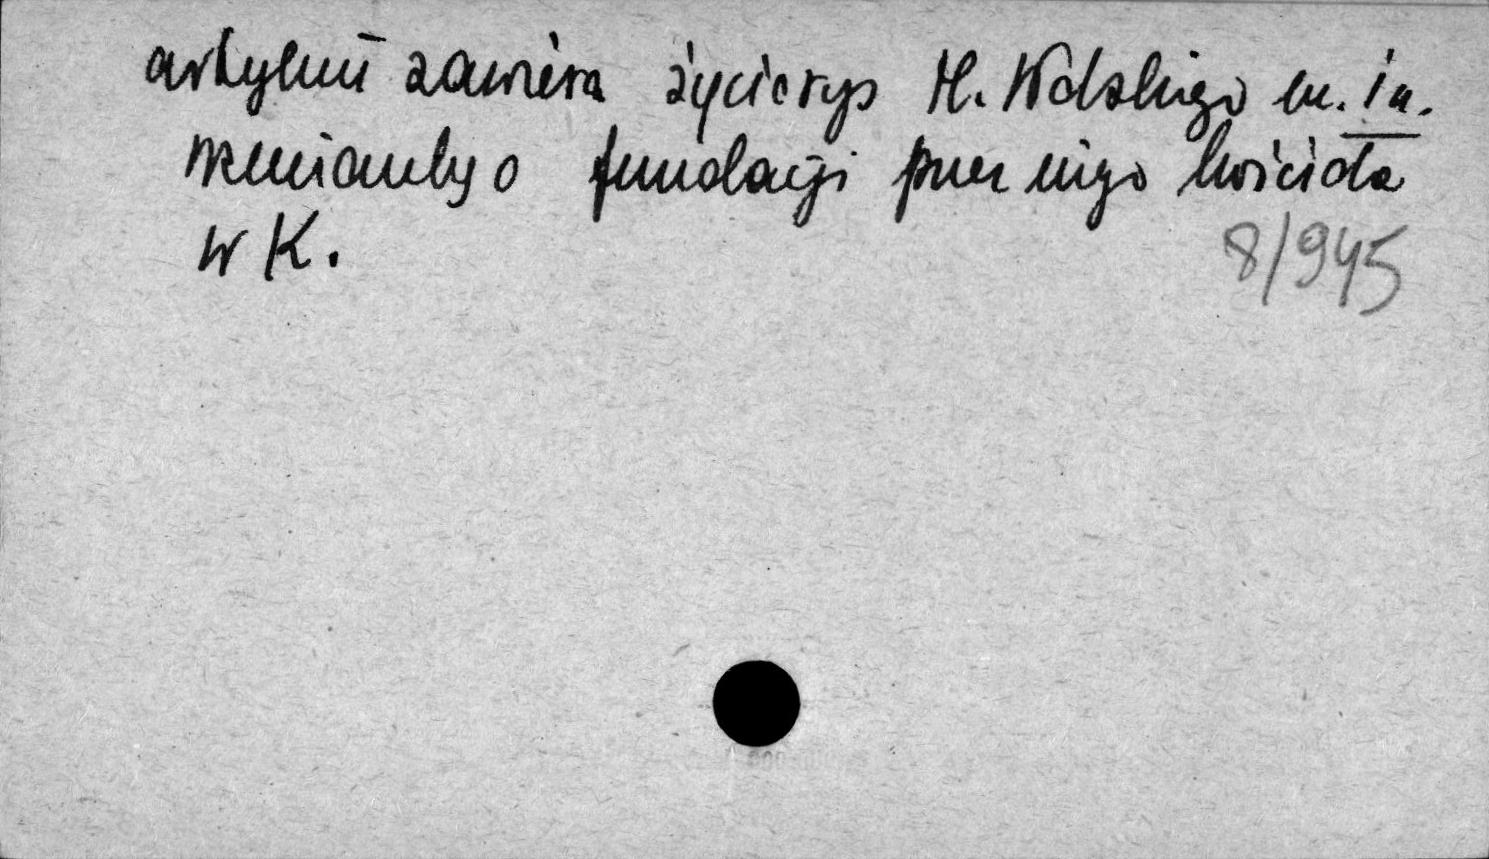 artykuł zawiera życiorys H. Wolskiego m. in.
wzmianki o fundacji przez niego kościoła
w K.
8/945